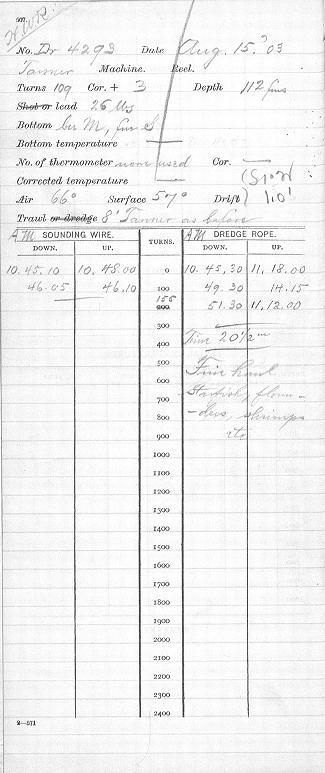 507.
H.W.R.
No. Dr 4293 Date Aug. 15. 03
Tanner Machine. Reel.
Turns 109 Cor. + 3 Depth 112 fms
Shot or lead 26 lbs
Bottom bu M, fne S
Bottom temperature —
No. of thermometer none used Cor. —
Corrected temperature —
Air 66° Surface 57° Drift 1.0'
Trawl or dredge 8' Tanner as before
AM SOUNDING WIRE. TURNS. AM DREDGE ROPE.
DOWN. UP. DOWN. UP.
10.45.10 10.48.00 0 10.45.30 11.18.00
46.05 46.10 100 49.30 14.15
155
200 51.30 11,12.00
300
400 Time 20 1/2 m
500 Fine haul
600
700 Starfish, floun-
800 -ders, shrimps
900 etc
1000
1100
1200
1300
1400
1500
1600
1700
1800
1900
2000
2100
2200
2300
2400
2—571